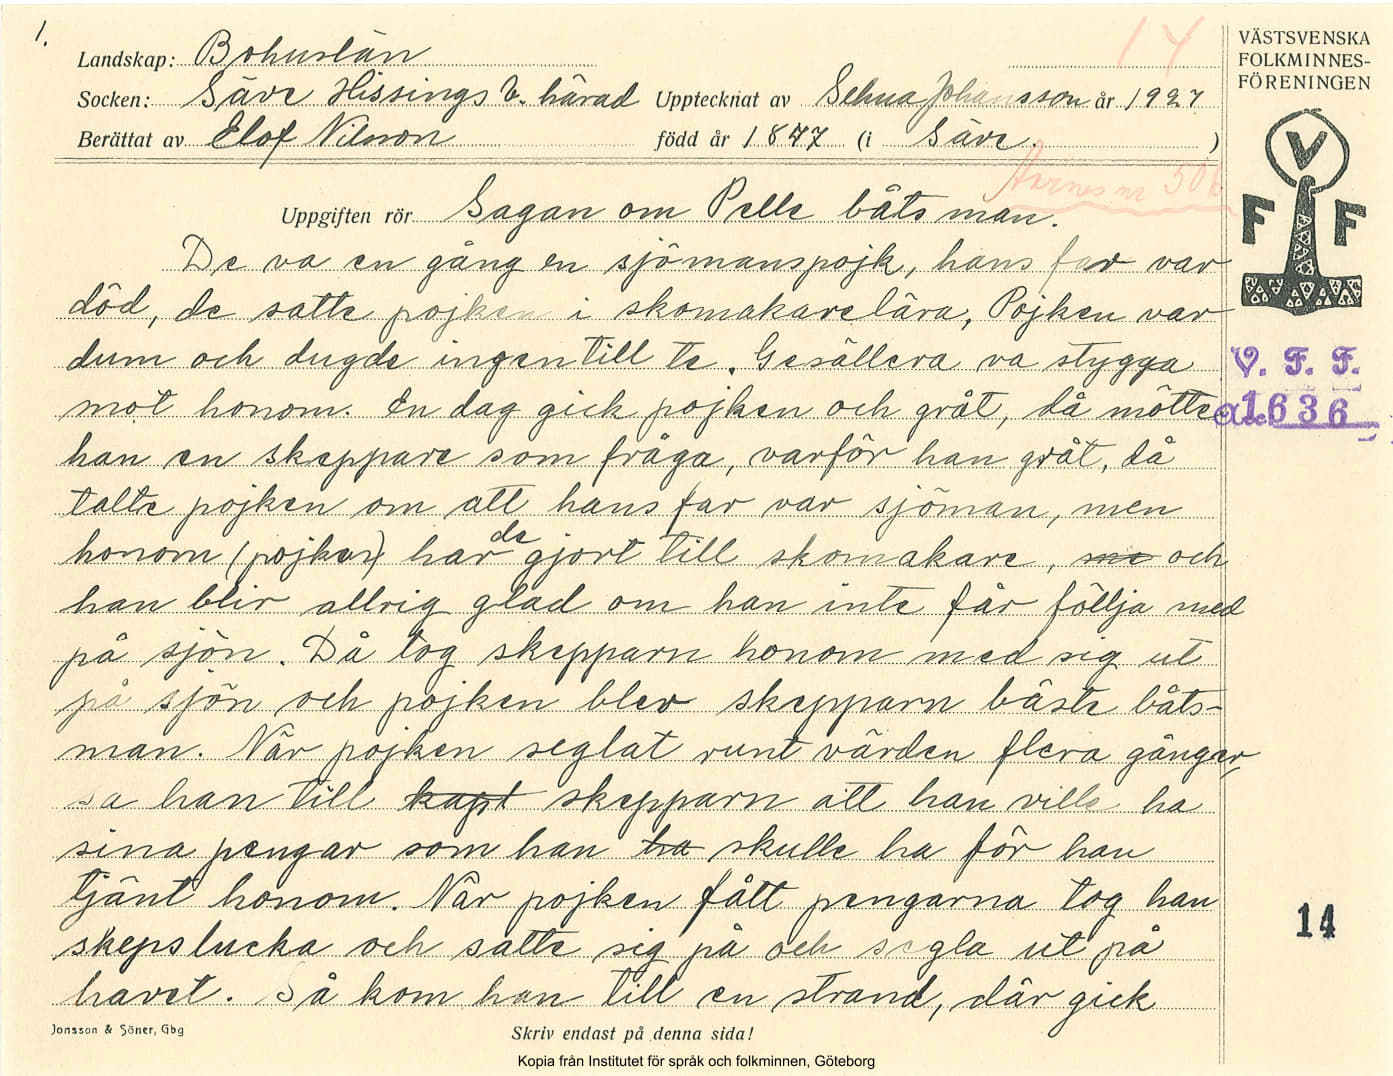 1.
14
Landskap: Bohuslän
Socken: Säve Hissings V. härad Upptecknat av Selma Johansson år 1927
Berättat av Elof Nilsson född år 1877 (i Säve. )
Aarnes nr 506
Uppgiften rör Sagan om Pelle båtsman.
De va en gång en sjömanspojk, hans far var
död, de satte pojken i skomakarelära, Pojken var
dum och dugde ingen till te. Gesällera va stygga
mot honom. En dag gick pojken och gråt, då mötte
han en skeppare som fråga, varför han gråt, då
talte pojken om att hans far var sjöman, men
honom (pojken) har de gjort till skomakare, me och
han blir allrig glad om han inte får föllja med
på sjön. Då tog skepparn honom med sig ut
på sjön och pojken blev skepparn bäste båts-
man. När pojken seglat runt värden flera gånger,
sa han till kapt skepparn att han ville ha
sina pengar som han ha skulle ha för han
tjänt honom. När pojken fått pengarna tog han
skepslucka och satte sig på och segla ut på
havet. Så kom han till en strand, där gick
VÄSTSVENSKA
FOLKMINNES-
FÖRENINGEN
V
F F
V. F. F.
1636
14
Jonsson & Söner, Gbg
Skriv endast på denna sida!
Kopia från Institutet för språk och folkminnen, Göteborg